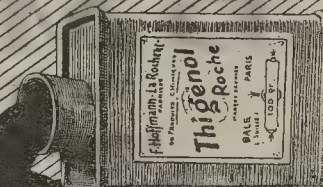 F. Hoffmann-La Roche & Co
FABRIQUE
DE PRODUITS CHIMIQUES
Thigenol
Roche
MARQUES DÉPOSÉE
BALE PARIS
(SUISSE)
100 Gr